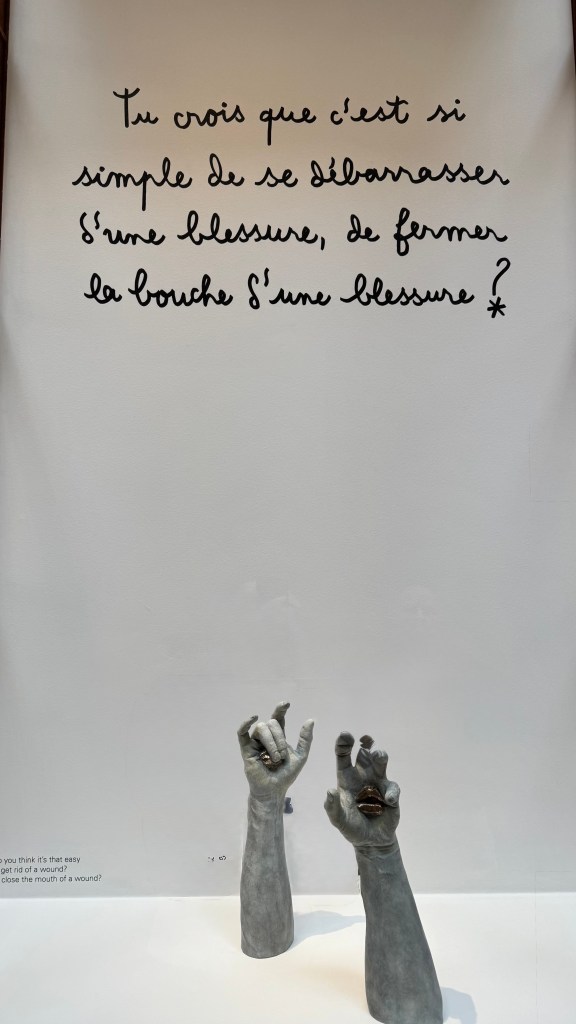 Tu crois que c'est si
simple de se débarrasser
d'une blessure, de fermer
la bouche d'une blessure ?
*
you think it's that easy
get rid of a wound?
close the mouth of a wound?